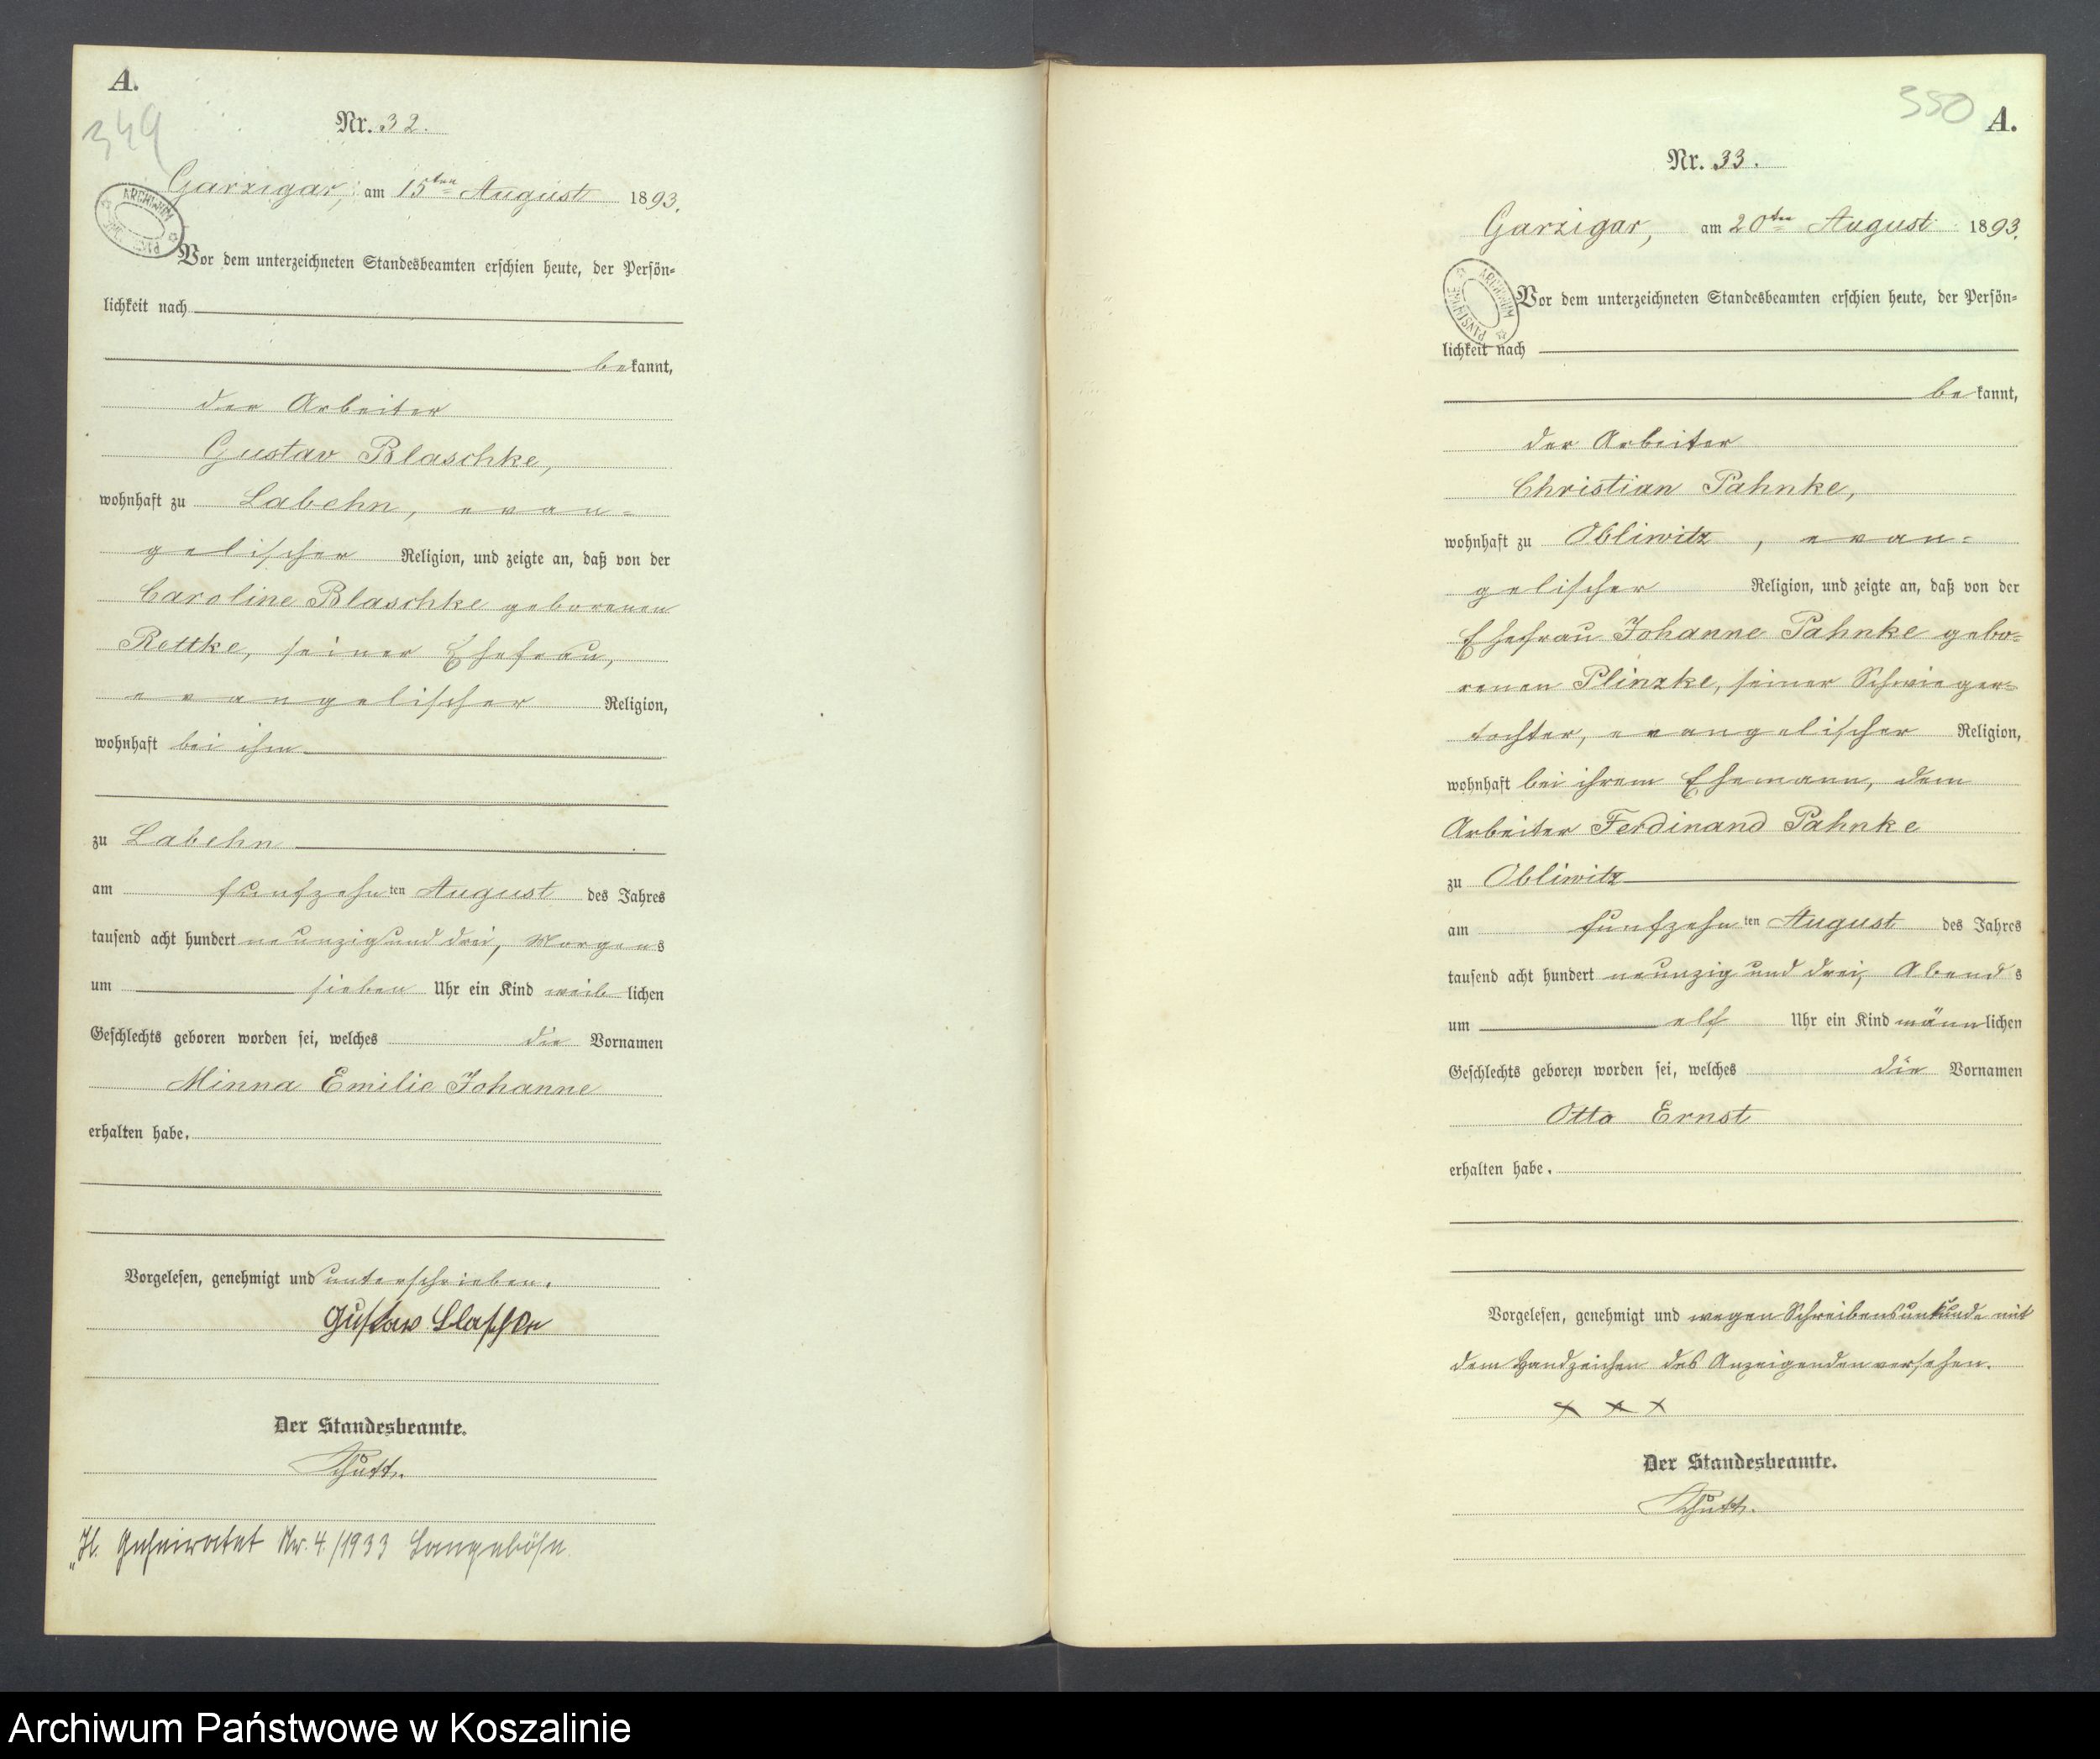 A.
349
Nr. 32.
Garzigar, am 15ten August 1893.
ARCHIWUM
Vor dem unterzeichneten Standesbeamten erschien heute, der Persön=
lichkeit nach
bekannt,
der Arbeiter
Gustav Blaschke,
wohnhaft zu Labehn, evan=
gelischer Religion, und zeigte an, daß von der
Caroline Blaschke geborenen
Rettke, seiner Ehefrau,
evangelischer Religion,
wohnhaft bei ihm
zu Labehn
am fünfzehnten August des Jahres
tausend acht hundert neunzig und drei, Morgens
um sieben Uhr ein Kind weiblichen
Geschlechts geboren worden sei, welches die Vornamen
Minna Emilie Johanne
erhalten habe.
Vorgelesen, genehmigt und unterschrieben.
Gustaw Blaschke
Der Standesbeamte.
H. Geheiratet Nr. 4./1933 Langeböse
350
A.
Nr. 33.
Garzigar, am 20ten August 1893.
ARCHIWUM PAŃSTWOWE
Vor dem unterzeichneten Standesbeamten erschien heute, der Persön=
lichkeit nach
bekannt,
der Arbeiter
Christian Pahnke,
wohnhaft zu Obliwitz, evan=
gelischer Religion, und zeigte an, daß von der
Ehefrau Johanne Pahnke gebo=
renen Plinzke, seiner Schwieger=
tochter, evangelischer Religion,
wohnhaft bei ihrem Ehemann, dem
Arbeiter Ferdinand Pahnke
zu Obliwitz
am fünfzehnten August des Jahres
tausend acht hundert neunzig und drei, Abends
um elf Uhr ein Kind männlichen
Geschlechts geboren worden sei, welches die Vornamen
Otto Ernst
erhalten habe.
Vorgelesen, genehmigt und wegen Schreibensunkunde mit
dem Handzeichen des Anzeigenden versehen.
x x x
Der Standesbeamte.
Archiwum Państwowe w Koszalinie